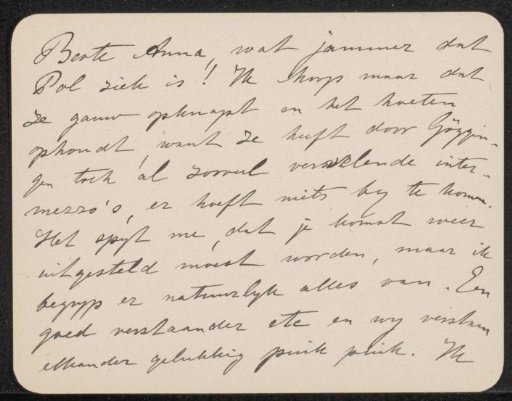 Beste Anna, wat jammer dat
Pol ziek is! Ik hoop maar dat
ze gauw opknapt en het hoeten
ophoudt, want ze heeft door Göggin-
gen toch al zooveel vervelende inter-
mezzo's, er hoeft niets bij te komen.
Het spijt me, dat je komst weer
uitgesteld moest worden, maar ik
begrijp er natuurlijk alles van. Een
goed verstaander etc en wij verstaan
elkander gelukkig pink pink. Ik